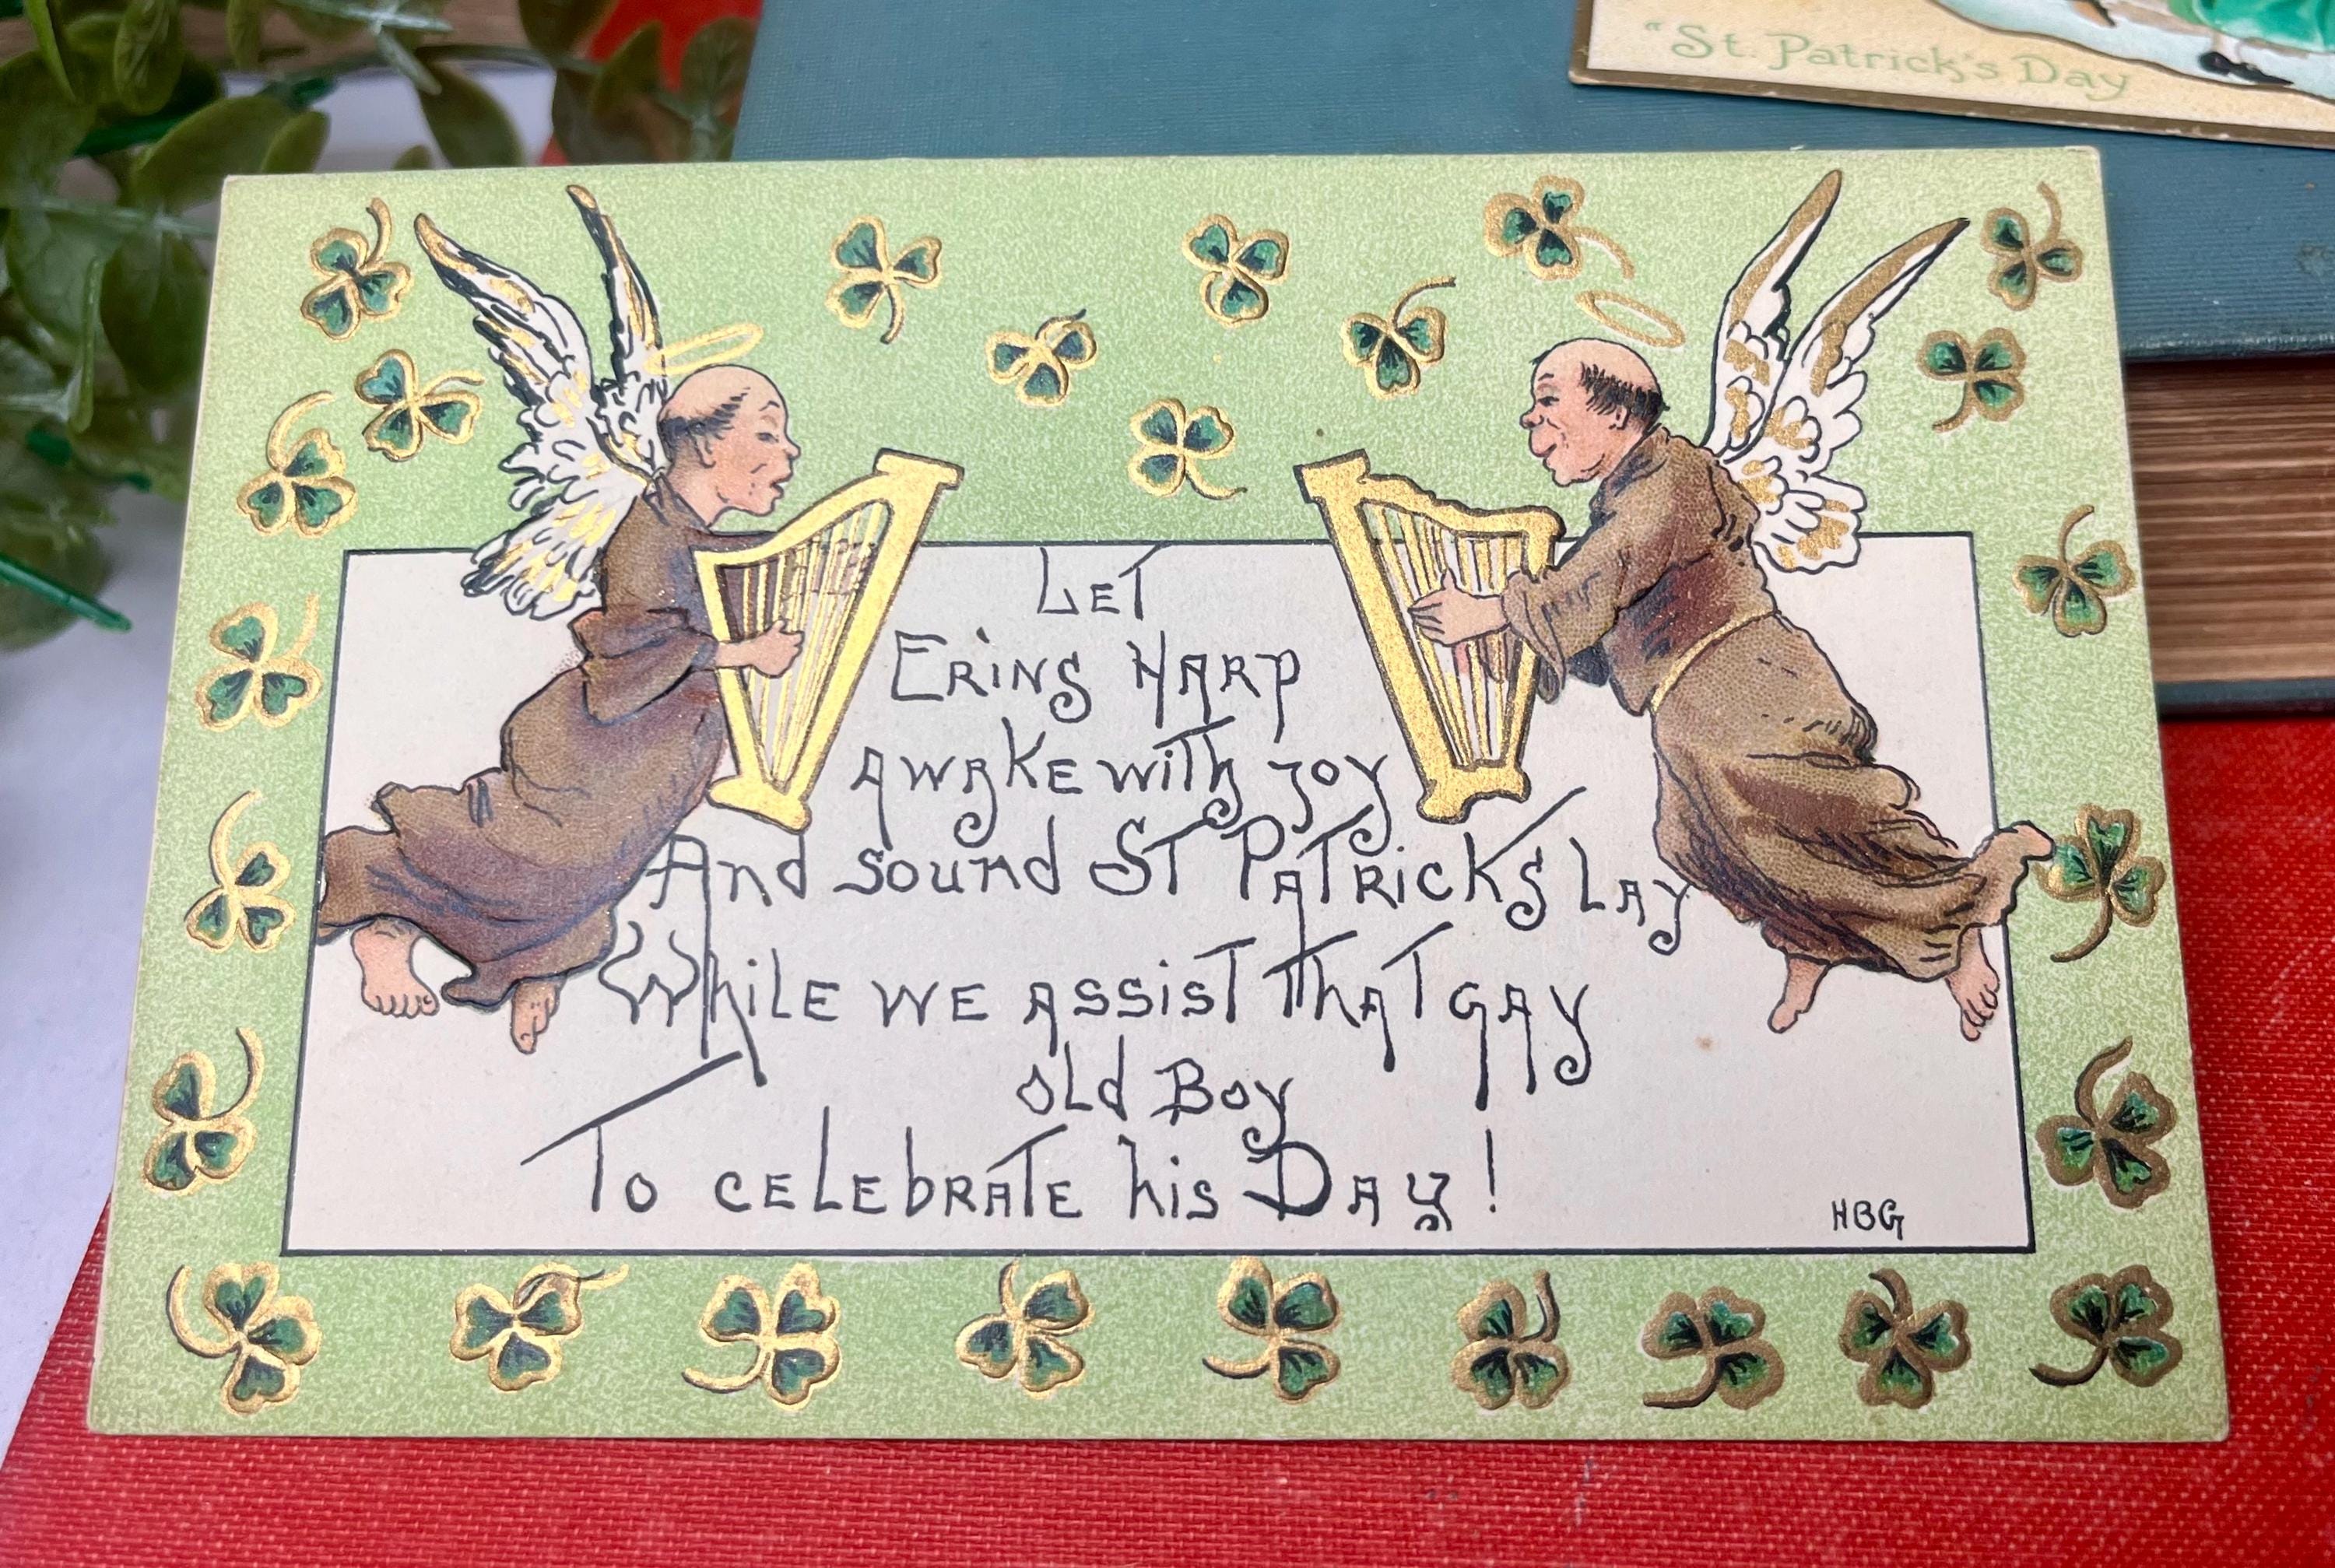 "St. Patrick's Day
LET
ERiNS HARP
AWAKE WiTh JOY
And sound ST PATRiCKS LAY
WhiLE WE ASSiST ThAT GAY
OLd BOY
TO CELEbRATE his DAY!
HBG